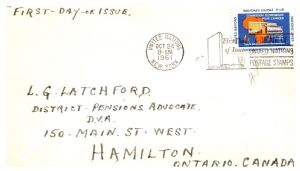 FIRST-DAY-OF ISSUE.
UNITED NATIONS
OCT 24
9-AM
1961
NEW YORK
First
of Issue
UNITED NATIONS
POSTAGE STAMPS
NATIONS UNIES
L.G. LATCHFORD.
DISTRICT PENSIONS ADVOCATE,
D.V.A.
150-MAIN. ST. WEST.
HAMILTON
ONTARIO. CANADA